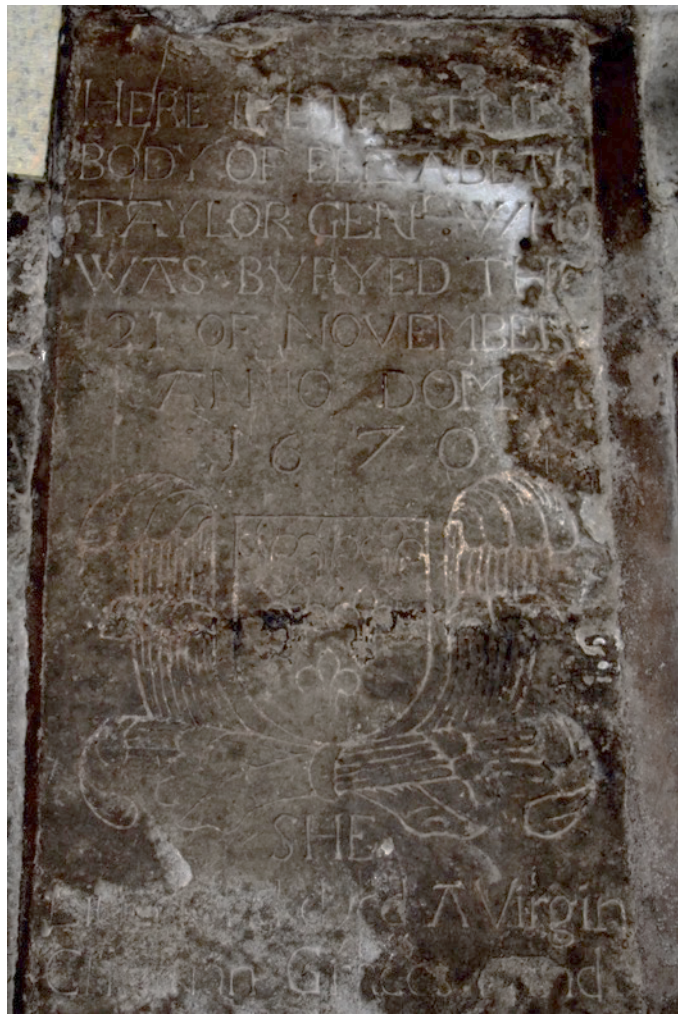 HERE LYETH THE
BODY OF ELIZABETH
TAYLOR GENt. WHO
WAS BVRYED THE
21 OF NOVEMBER
ANNO DOM
1670
SHE
Liued and dyed A Virgin
Christian Graces and